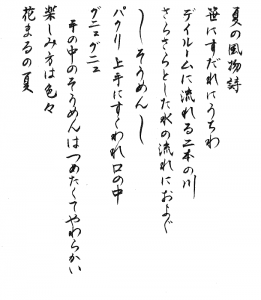 夏の風物詩
笹にすだれにうちわ
デイルームに流れる二本の川
さらさらとした水の流れにおよぐ
〜そうめん〜
パクリ 上手にすくわれ口の中
グニュグニュ
手の中のそうめんはつめたくてやわらかい
楽しみ方は色々
花まるの夏